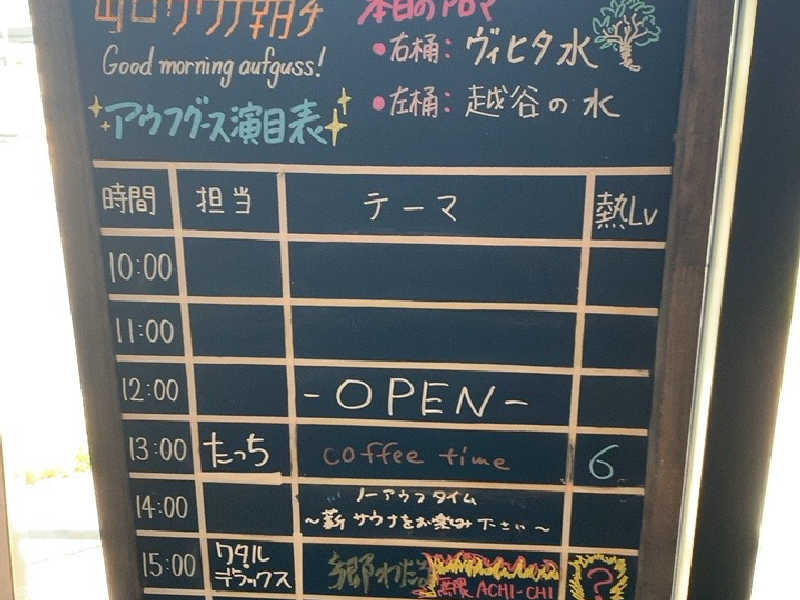 Good morning aufguss!
アウフグース演目表
本日のアロマ
●右桶：ヴィヒタ水
●左桶：越谷の水
時間 担当 テーマ 熱Lv
10:00
11:00
12:00 -OPEN-
13:00 たっち coffee time 6
14:00 ノーアウフタイム
〜薪サウナをお楽しみ下さい〜
15:00 ワタル
デラックス ACHI-CHI ?